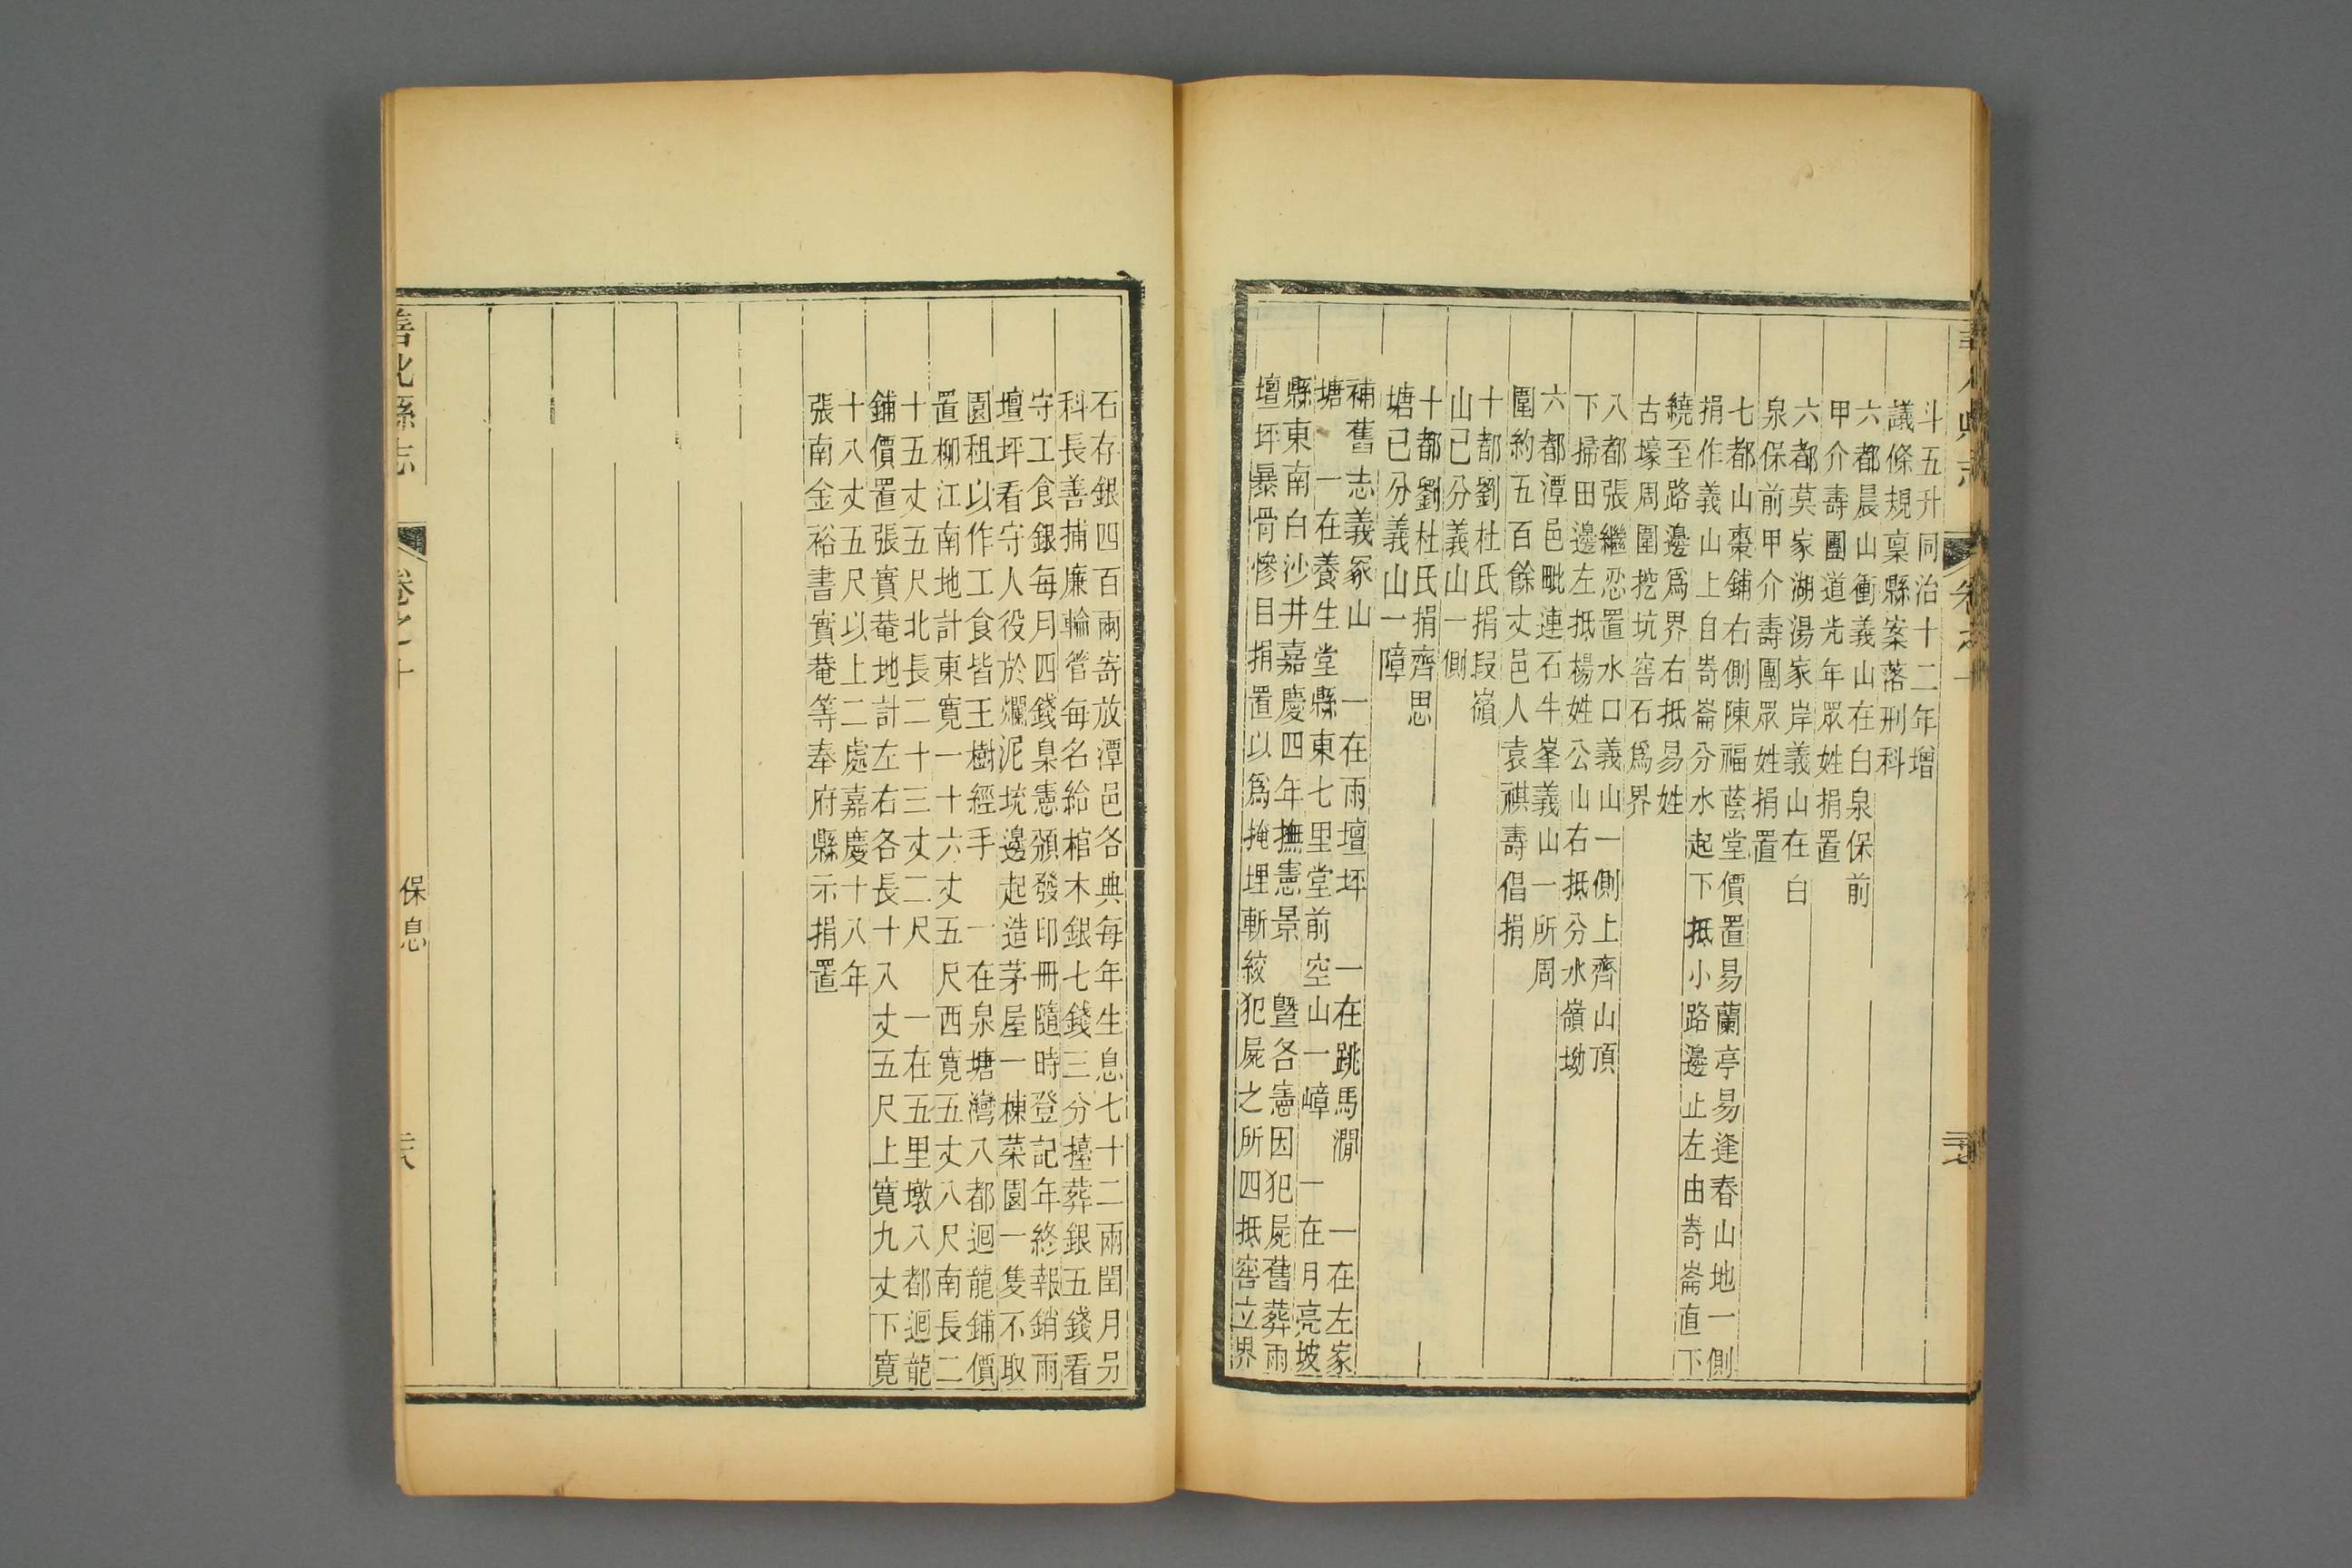 斗五升同治十二年增
議條規稟縣案落刑科
六都晨山衝義山在白泉保前
甲介壽團道光年眾姓捐置
六都莫家湖湯家岸義山在白
泉保前甲介壽團眾姓捐置
七都山棗鋪右側陳福蔭堂價置易蘭亭易逢春山地一側
捐作義山上自嵜崙分水起下抵小路邊止左由嵜崙直下
繞至路邊爲界右抵易姓
古壕周圍挖坑窖石爲界
八都張繼忍置水口義山一側上齊山頂
下掃田邊左抵楊姓公山右抵分水嶺坳
六都潭邑毗連石牛峯義山一所周
圍約五百餘丈邑人袁祺壽倡捐
十都劉杜氏捐段嶺
山已分義山一側
十都劉杜氏捐齊思
塘已分義山一障
補舊志義冢山 一在雨壇坪 一在跳馬澗 一在左家
塘 一在養生堂縣東七里堂前空山一嶂 一在月亮坡
縣東南白沙井嘉慶四年撫憲景 暨各憲因犯屍舊葬雨
壇坪暴骨慘目捐置以爲掩埋斬絞犯屍之所四抵窖立界
石存銀四百兩寄放潭邑各典每年生息七十二兩閏月另
科長善捕廉輪管每名給棺木銀七錢三分擡葬銀五錢看
守工食銀每月四錢臬憲頒發印冊隨時登記年終報銷雨
壇坪看守人役於爛泥坑邊起造茅屋一棟菜園一隻不取
園租以作工食皆王樹經手 一在泉塘灣八都迴龍鋪價
置柳江南地計東寬一十六丈五尺西寬五丈八尺南長二
十五丈五尺北長二十三丈二尺 一在五里墩八都迴龍
鋪價置張實菴地計左右各長十八丈五尺上寬九丈下寬
十八丈五尺以上二處嘉慶十八年
張南金裕書實菴等奉府縣示捐置
善化縣志
卷之十
保息